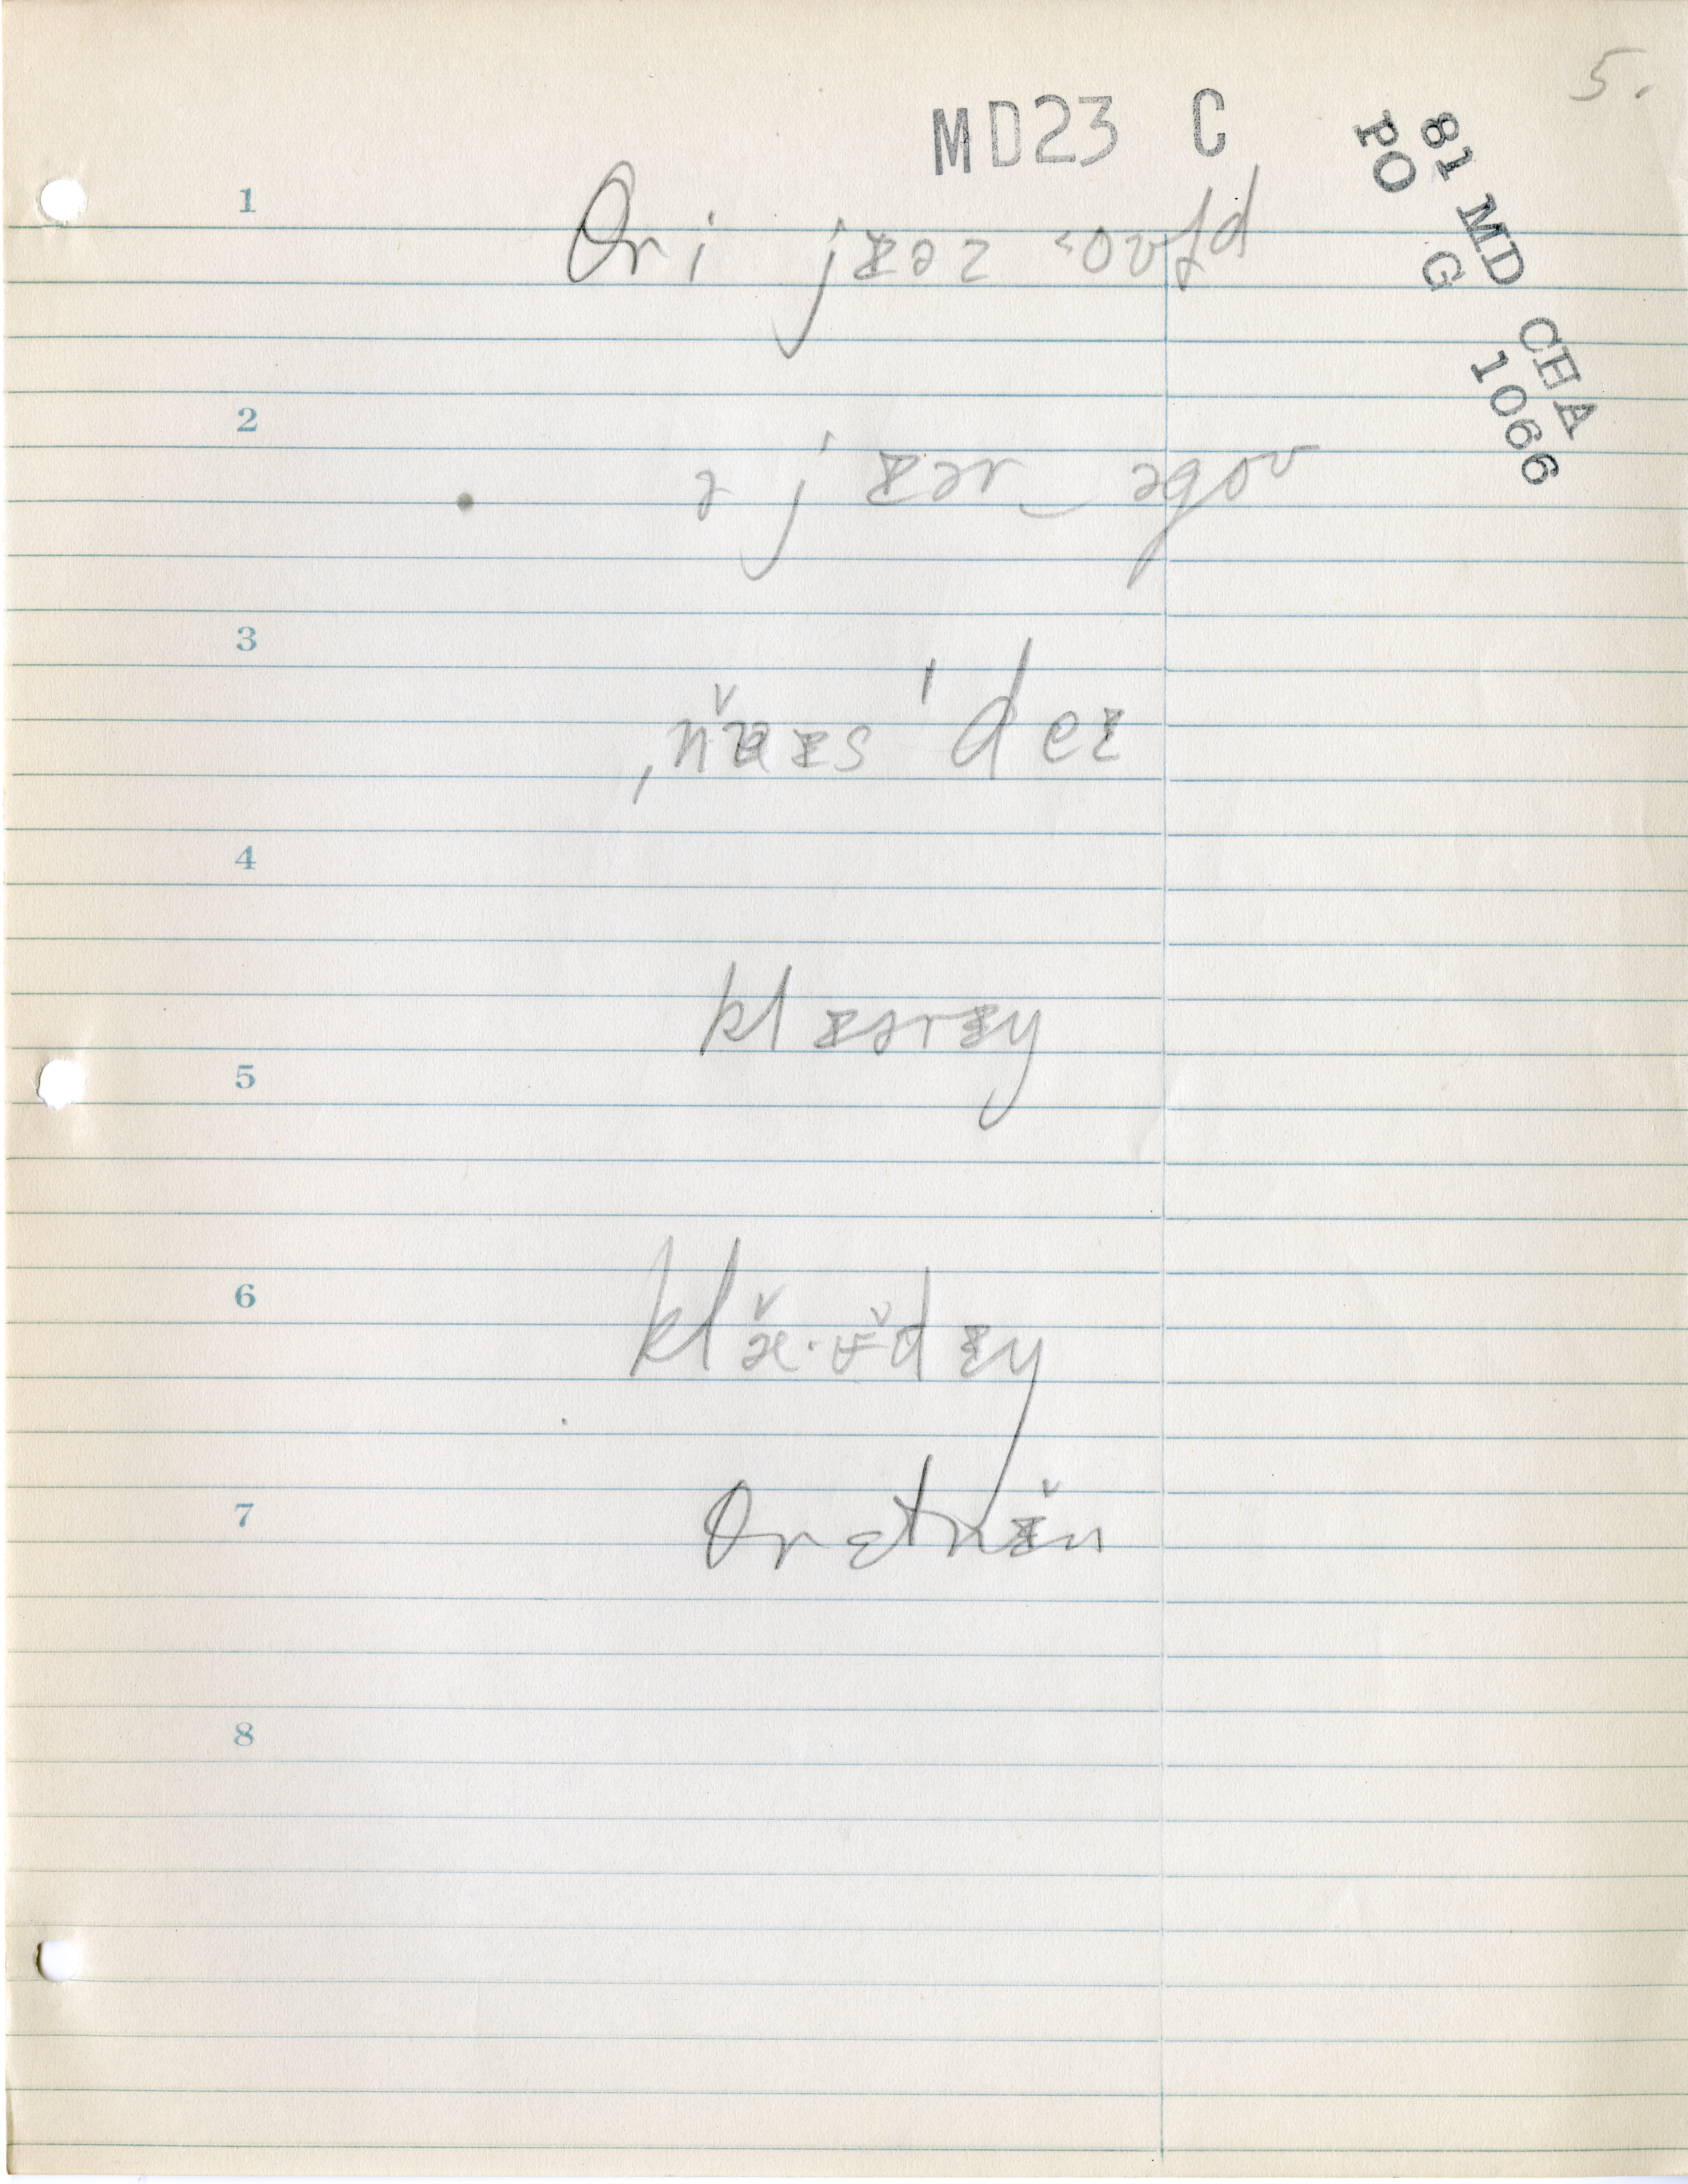 5.
MD23 C
81 MD CHA
PO G 1066
1
θri jɪəz ˂oʊɫd
2
ə jɪər‿əgoʊ
3
ˌnɑ̌ɪs ˈdeɪ
4
klɪərɪŋ
5
6
klæ̌·ʊ̌dɪŋ
7
θrɛtnɪ̌n
8